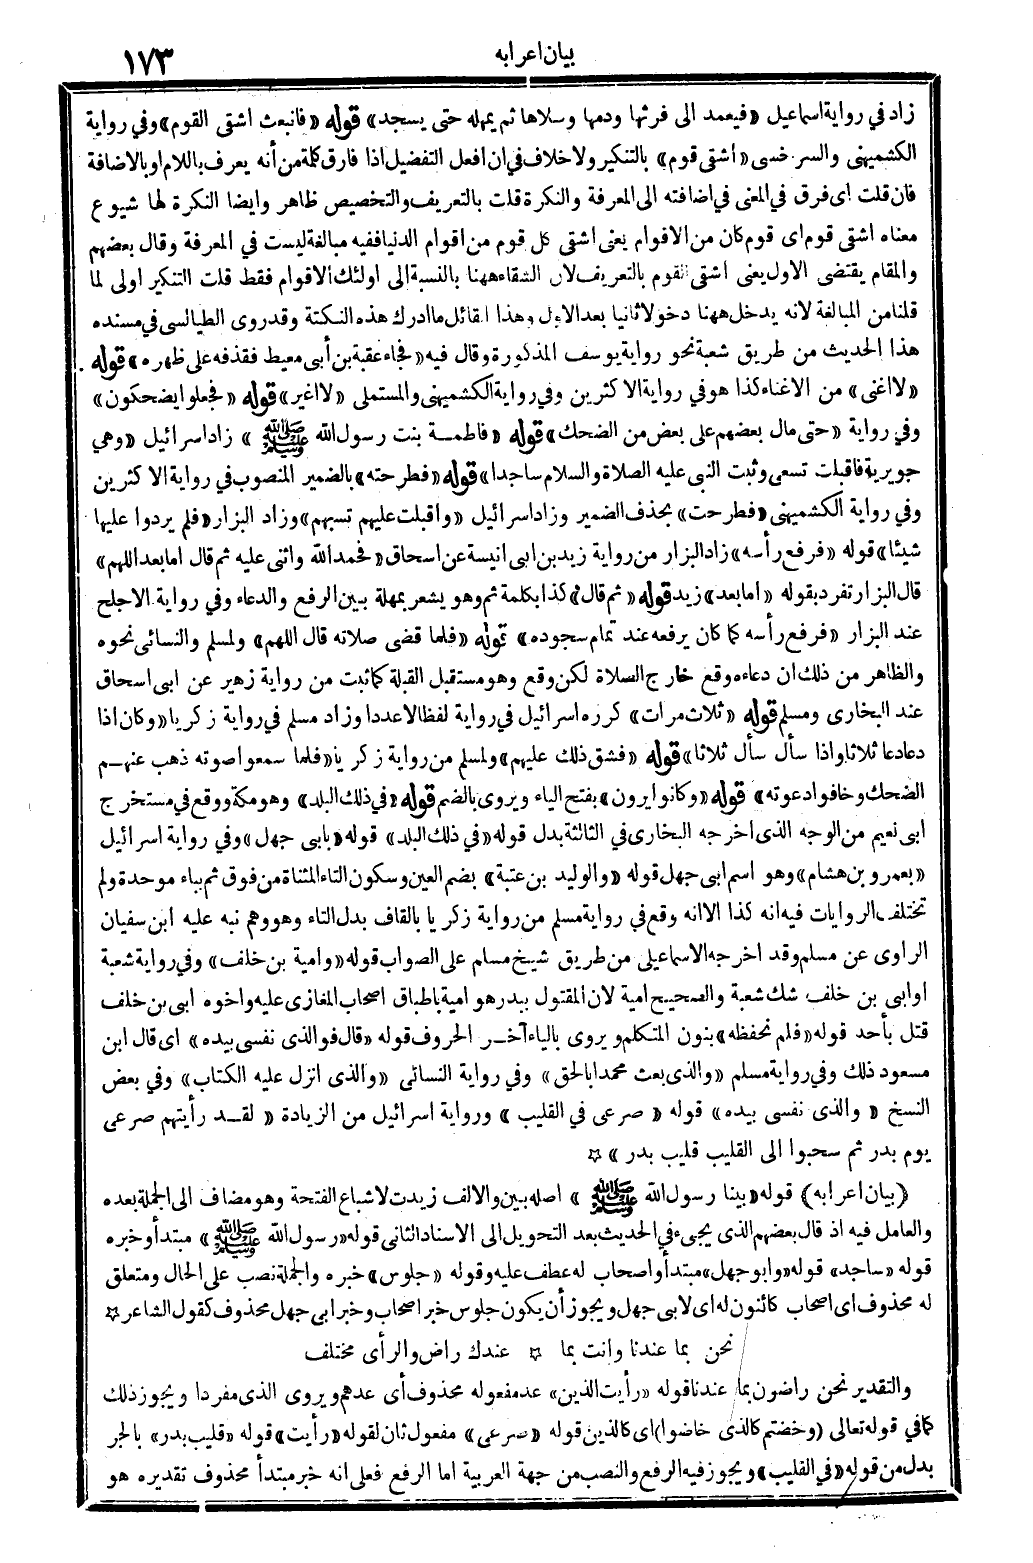 بيان اعرابه
١٧٣
زاد في رواية اسماعيل «فيعمد الى فرثها ودمها وسلاها ثم يمهله حتى يسجد» قوله «فانبعث اشقى القوم» وفي رواية
الكشميهنى والسرخسى «اشقى قوم» بالتنكير ولا خلاف في ان افعل التفضيل اذا فارق كلة من أنه يعرف باللام او بالاضافة
فان قلت اى فرق في المعنى في اضافته الى المعرفة والنكرة قلت بالتعريف والتخصيص ظاهر وايضا النكرة لها شيوع
معناه اشقى قوم اى قوم كان من الاقوام يعنى اشقى كل قوم من اقوام الدنيا ففيه مبالغة ليست في المعرفة وقال بعضهم
والمقام يقتضى الاول يعنى اشقى القوم بالتعريف لان الشقاء ههنا بالنسبة إلى اولئك الاقوام فقط قلت التنكير اولى لما
قلنا من المبالغة لانه يدخل ههنا دخولا ثانيا بعد الاول وهذا القائل ما ادرك هذه النكتة وقد روى الطيالسى في مسنده
هذا الحديث من طريق شعبة نحو رواية يوسف المذكورة وقال فيه «فجاء عقبة بن أبى معيط فقذفه على ظهره» قوله
«لا اغنى» من الاغناء كذا هو في رواية الاكثرين وفي رواية الكشميهنى والمستملى «لا اغير» قوله «فجعلوا يضحكون»
وفي رواية «حتى مال بعضهم على بعض من الضحك» قوله «فاطمة بنت رسول الله ﷺ» زاد اسرائيل «وهي
جويرية فاقبلت تسعى وثبت النبى عليه الصلاة والسلام ساجدا» قوله «فطرحته» بالضمير المنصوب في رواية الاكثرين
وفي رواية الكشميهنى «فطرحت» بحذف الضمير وزاد اسرائيل «واقبلت عليهم تسبهم» وزاد البزار «فلم يردوا عليها
شيئا» قوله «فرفع رأسه» زاد البزار من رواية زيد بن ابى انيسة عن اسحاق «فحمد الله واثنى عليه ثم قال اما بعد اللهم»
قال البزار تفرد بقوله «اما بعد» زيد قوله «ثم قال» كذا بكلمة ثم وهو يشعر بمهلة بين الرفع والدعاء وفي رواية الاجلح
عند البزار «فرفع رأسه كما كان يرفعه عند تمام سجوده» قوله «فلما قضى صلاته قال اللهم» ولمسلم والنسائى نحوه
والظاهر من ذلك ان دعاءه وقع خارج الصلاة لكن وقع وهو مستقبل القبلة كما ثبت من رواية زهير عن ابى اسحاق
عند البخارى ومسلم قوله «ثلاث مرات» كرره اسرائيل في رواية لفظا لا عددا وزاد مسلم في رواية زكريا «وكان اذا
دعا دعا ثلاثا واذا سأل سأل ثلاثا» قوله «فشق ذلك عليهم» ولمسلم من رواية زكريا «فلما سمعوا صوته ذهب عنهم
الضحك وخافوا دعوته» قوله «وكانوا يرون» بفتح الياء ويروى بالضم قوله «في ذلك البلد» وهو مكة ووقع في مستخرج
ابى نعيم من الوجه الذى اخرجه البخارى في الثالثة بدل قوله «في ذلك البلد» قوله «بابى جهل» وفي رواية اسرائيل
«بعمرو بن هشام» وهو اسم ابى جهل قوله «والوليد بن عتبة» بضم العين وسكون التاء المثناة من فوق ثم بباء موحدة ولم
تختلف الروايات فيه انه كذا الا انه وقع في رواية مسلم من رواية زكريا بالقاف بدل التاء وهو وهم نبه عليه ابن سفيان
الراوى عن مسلم وقد اخرجه الاسماعيلى من طريق شيخ مسلم على الصواب قوله «وامية بن خلف» وفي رواية شعبة
او ابى بن خلف شك شعبة والصحيح امية لان المقتول ببدر هو امية باطباق اصحاب المغازى عليه واخوه ابى بن خلف
قتل بأحد قوله «فلم نحفظه» بنون المتكلم ويروى بالياء آخر الحروف قوله «قال فوالذى نفسى بيده» اى قال ابن
مسعود ذلك وفي رواية مسلم «والذى بعث محمدا بالحق» وفي رواية النسائى «والذى انزل عليه الكتاب» وفي بعض
النسخ «والذى نفسى بيده» قوله «صرعى في القليب» ورواية اسرائيل من الزيادة «لقد رأيتهم صرعى
يوم بدر ثم سحبوا الى القليب قليب بدر» ☆
(بيان اعرابه) قوله «بينا رسول الله ﷺ» اصله بين والالف زيدت لاشباع الفتحة وهو مضاف الى الجملة بعده
والعامل فيه اذ قال بعضهم الذى يجىء في الحديث بعد التحويل الى الاسناد الثانى قوله «رسول الله ﷺ» مبتدأ وخبره
قوله «ساجد» قوله «وابو جهل» مبتدأ واصحاب له عطف عليه وقوله «جلوس» خبره والجملة نصب على الحال ومتعلق
له محذوف اى اصحاب كائنون له اى لابى جهل ويجوز أن يكون جلوس خبر اصحاب وخبر ابى جهل محذوف كقول الشاعر ☆
نحن بما عندنا وانت بما ☆ عندك راض والرأى مختلف
والتقدير نحن راضون بما عندنا قوله «رأيت الذين» عد مفعوله محذوف أى عدهم ويروى الذى مفردا ويجوز ذلك
كما في قوله تعالى (وخضتم كالذى خاضوا) اى كالذين قوله «صرعى» مفعول ثان لقوله «رأيت» قوله «قليب بدر» بالجر
بدل من قوله «في القليب» ويجوز فيه الرفع والنصب من جهة العربية اما الرفع فعلى انه خبر مبتدأ محذوف تقديره هو